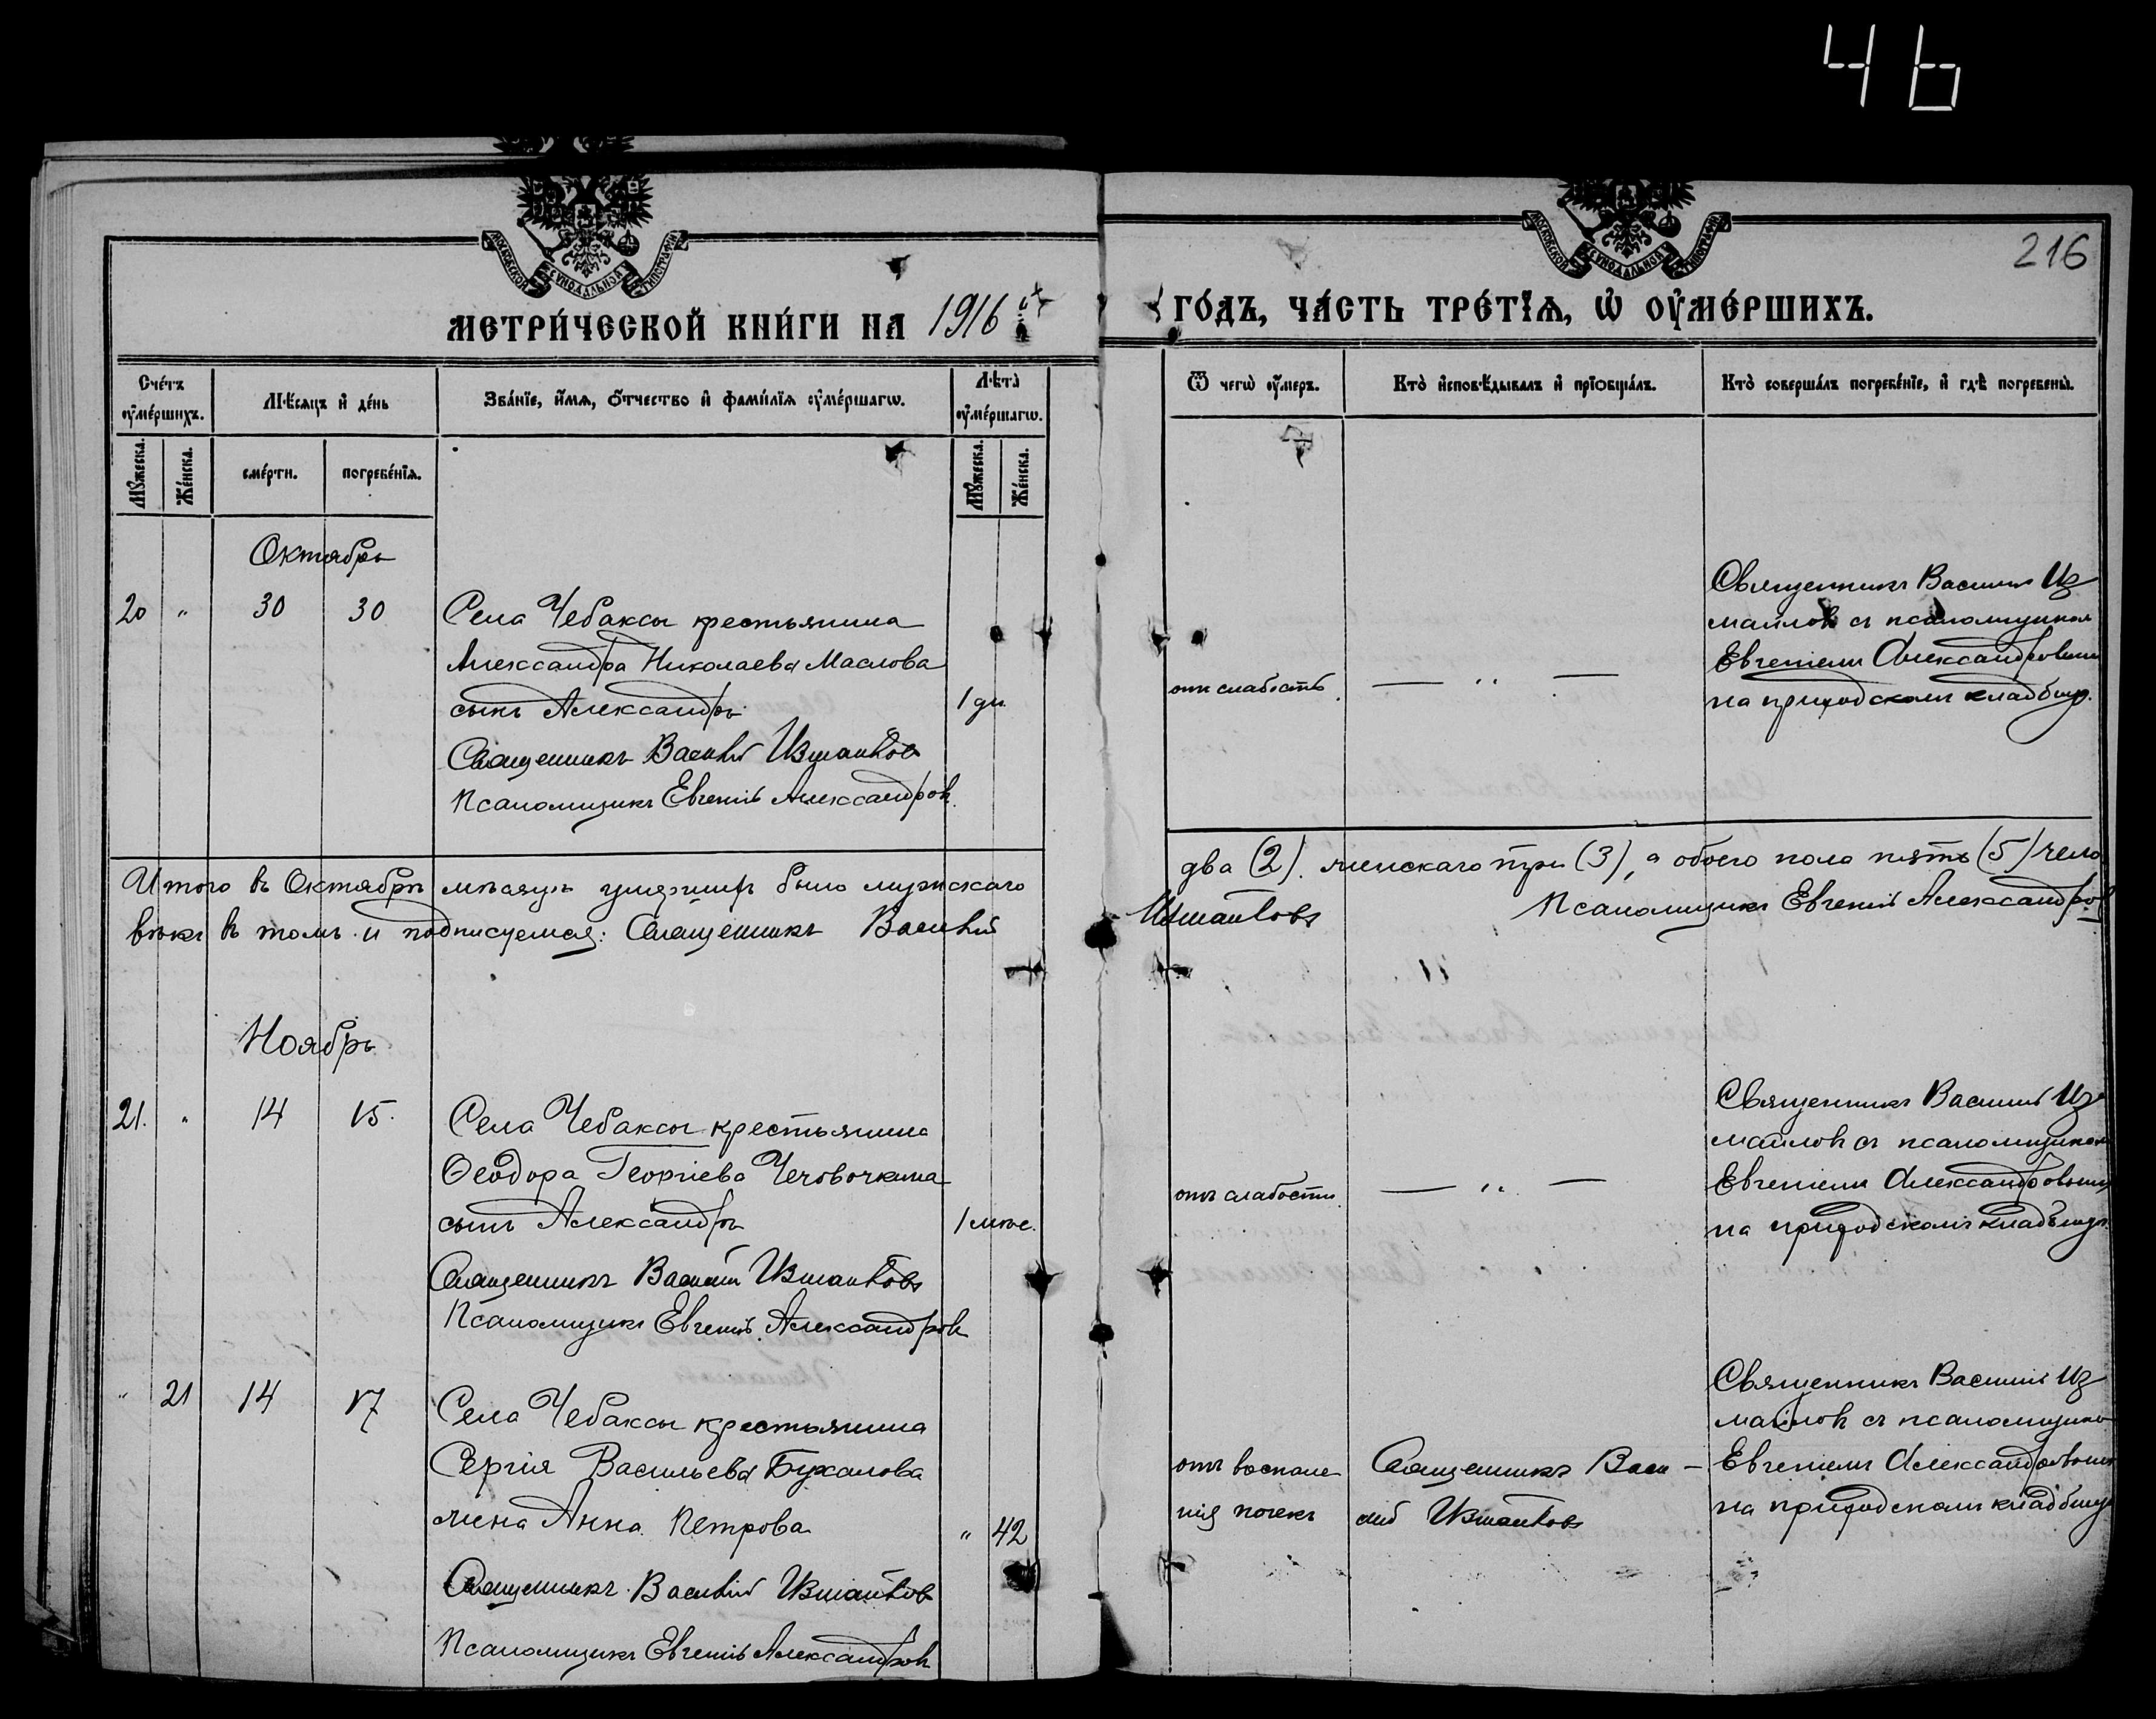 46
МОСКОВСКОЙ СѴНОДАЛЬНОЙ ТИПОГРАФІИ
МОСКОВСКОЙ СѴНОДАЛЬНОЙ ТИПОГРАФІИ
216
МЕТРИ́ЧЕСКОЙ КНИ́ГИ НА 1916 й
ГО́ДЪ, ЧА́СТЬ ТРЕ́ТЇѦ, Ѡ҆ ОУ҆МЕ́РШИХЪ.
Сче́тъ оу҆ме́ршихъ.
Мѣ́сяцъ и҆ де́нь
Зва́нїе, и҆́мѧ, ѻ҆́тчество и҆ фами́лїѧ оу҆ме́ршагѡ.
Лѣ́та̀ оу҆ме́ршагѡ.
Ѿ чегѡ̀ оу҆́меръ.
Кто̀ и҆сповѣ́дывалъ и҆ прїѡбща́лъ.
Кто̀ соверша́лъ погребе́нїе, и҆ гдѣ̀ погребены̀.
Мꙋ́жеска.
Же́нска.
сме́рти.
погребе́нїѧ.
Мꙋ́жеска.
Же́нска.
Октябрь
20 " 30 30
Села Чебаксы крестьянина
Александра Николаева Маслова
сынъ Александръ
1 дн.
Священникъ Василій Измайловъ
Псаломщикъ Евгеній Александровъ.
отъ слабости
— " —
Священникъ Василій Из
майловъ съ псаломщикомъ
Евгеніемъ Александровымъ
на приходскомъ кладбищѣ.
Итого въ Октябрѣ мѣсяцѣ умершихъ было мужскаго
два (2). женскаго три (3), а обоего пола пять (5) чело
вѣкъ въ томъ и подписуемся: Священникъ Василій
Измайловъ Псаломщикъ Евгеній Александровъ
Ноябрь
21. " 14 15.
Села Чебаксы крестьянина
Ѳеодора Георгіева
сынъ Александръ
1 мѣс.
Священникъ Василій Измайловъ
Псаломщикъ Евгеній Александровъ
отъ слабости
— " —
Священникъ Василій Из
майловъ съ псаломщикомъ
Евгеніемъ Александровымъ
на приходскомъ кладбищѣ.
" 21 14 17
Села Чебаксы крестьянина
Сергія Васильева Бухалова
жена Анна Петрова
" 42
Священникъ Василій Измайловъ
Псаломщикъ Евгеній Александровъ
отъ воспале
нія почекъ
Священникъ Васи-
лій Измайловъ
Священникъ Василій Из
майловъ съ псаломщикомъ
Евгеніемъ Александровымъ
на приходскомъ кладбищѣ